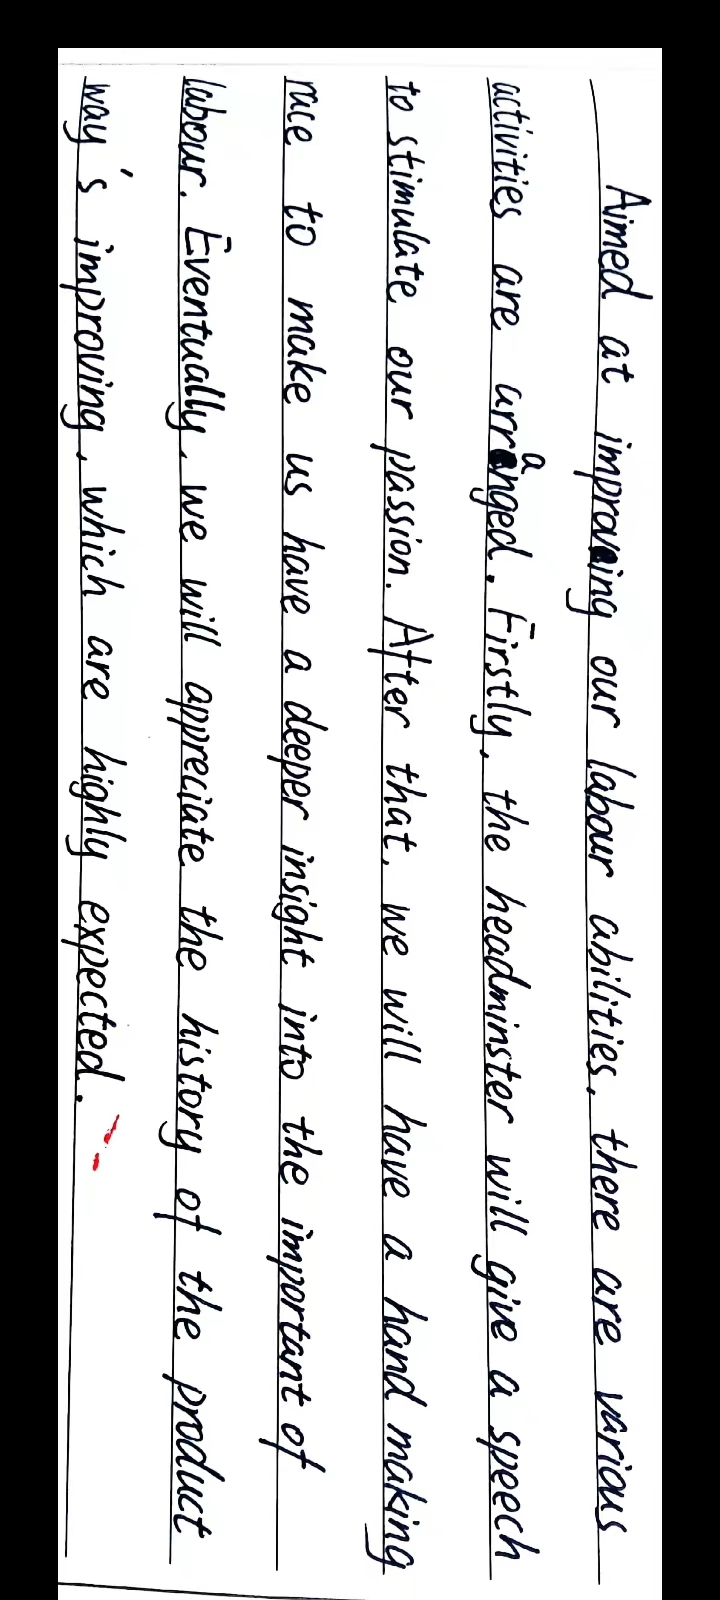 Aimed at improving our labour abilities, there are various
activities are arranged. Firstly, the headminster will give a speech
to stimulate our passion. After that, we will have a hand making
race to make us have a deeper insight into the important of
labour. Eventually, we will appreciate the history of the product
way's improving, which are highly expected.